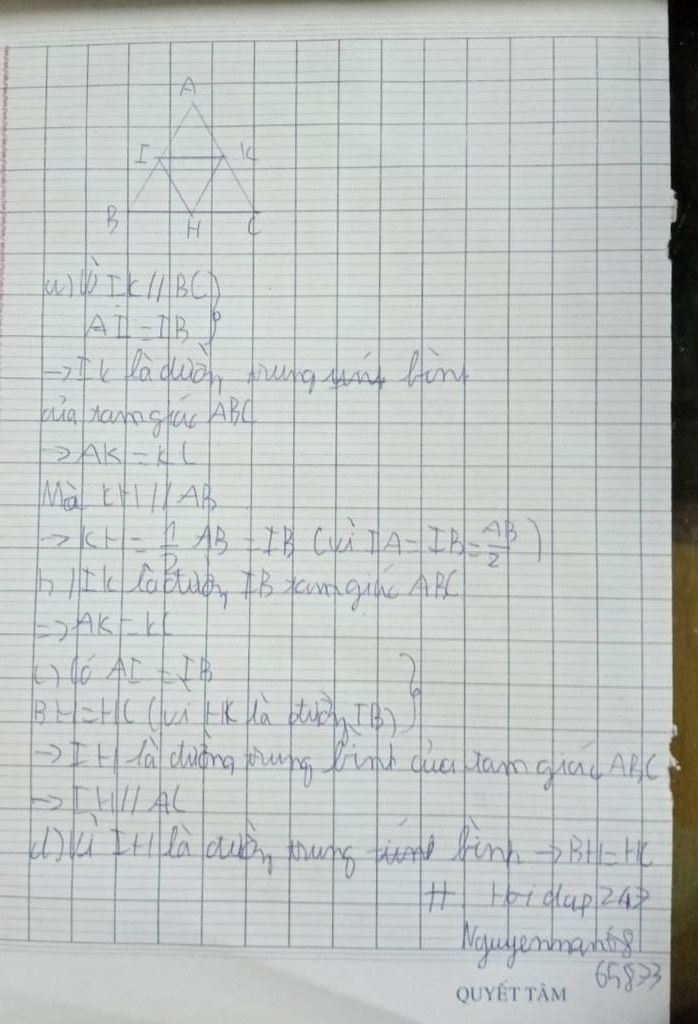 A
I K
B H C
a) Vì IK // BC
AI = IB
→ IK là đường trung bình
của tam giác ABC
→ AK = KC
Mà KH // AB
→ KH = 1/2 AB = IB (vì IA = IB = AB/2)
b) IK là đường TB tam giác ABC
=> AK = KC
c) Có AI = IB
BH = HC (vì HK là đường TB)
→ IH là đường trung bình của tam giác ABC
→ IH // AC
d) Vì IH là đường trung bình → BH = HC
# Hoidap247
Nguyenmanh68
65873
QUYẾT TÂM